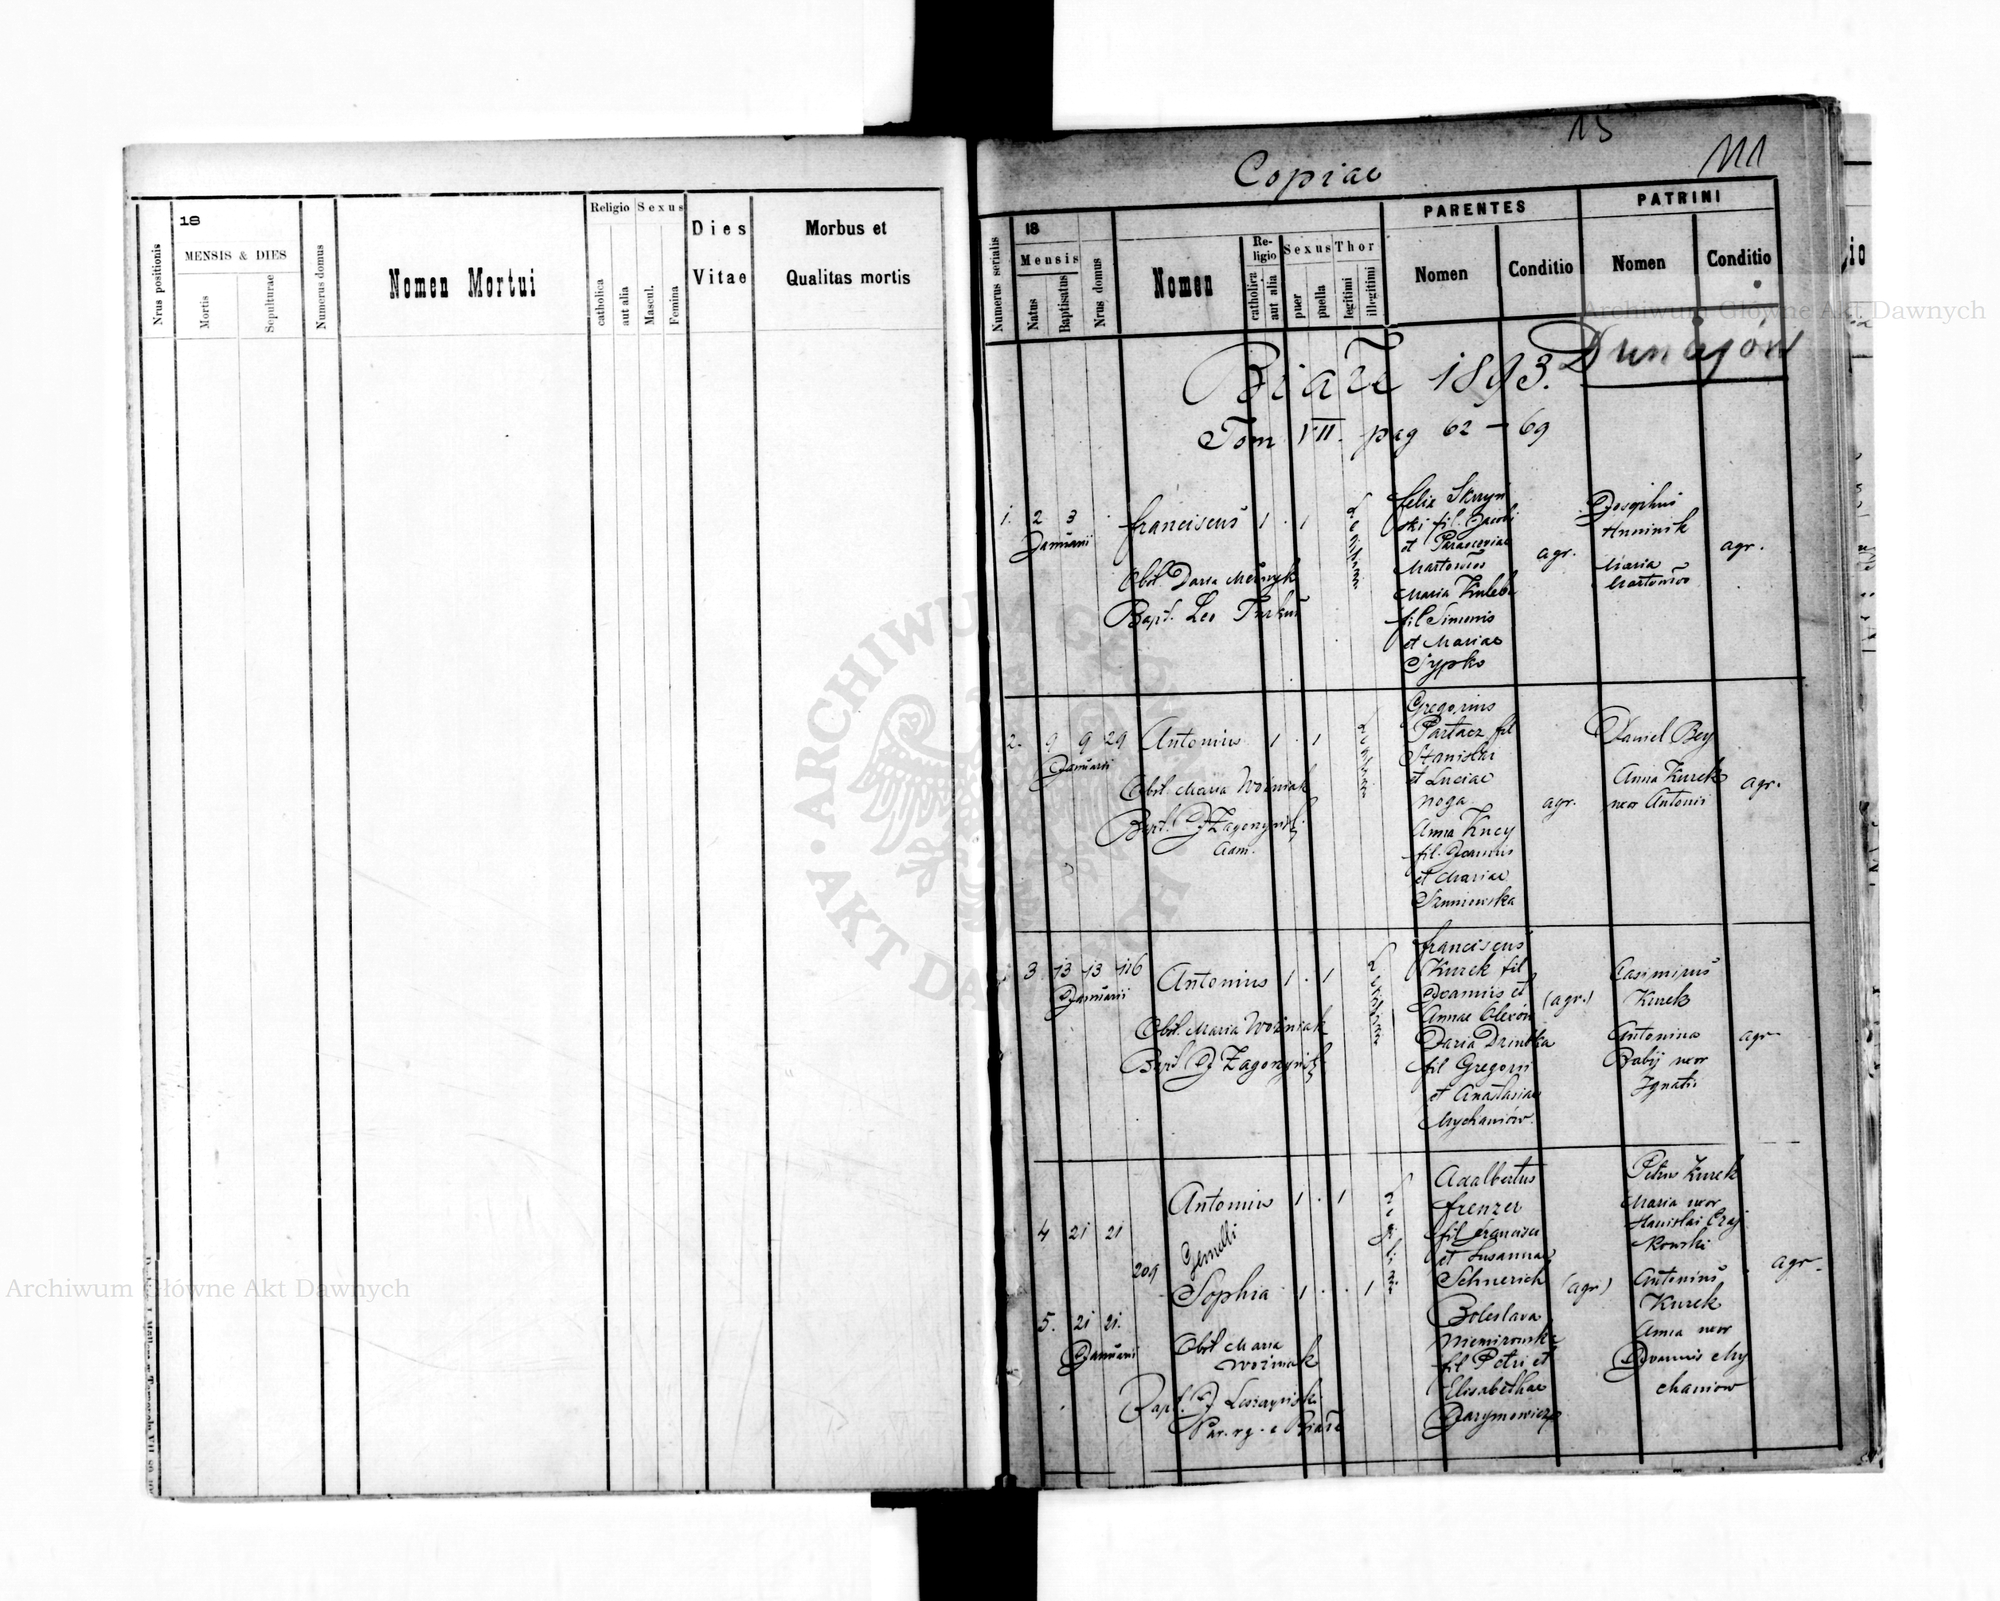 Nrus positionis
18
MENSIS & DIES
Mortis
Sepulturae
Numerus domus
Nomen Mortui
Religio
catholica
aut alia
Sexus
Mascul.
Femina
Dies
Vitae
Morbus et
Qualitas mortis
15
111
Copiae
Numerus serialis
18
Mensis
Natus
Baptisatus
Nrus domus
Nomen
Re-
ligio
catholica
aut alia
Sexus
puer
puella
Thor
legitimi
illegitimi
PARENTES
Nomen
Conditio
PATRINI
Nomen
Conditio
Dunajów
Białe 1893.
Tom VII. pag 62 — 69
1. 2 3
Januarii
Franciscus 1 . 1
Obst. Daria
Bapt. Leo
Felix
ski fil. Jacobi
et Parasceviae
Maria
fil Simonis
et Mariae
Sypko
agr.
Josephus
Maria
agr.
2. 9 9 29
Januarii
Antonius 1 . 1
Obst. Maria Woźniak
Bapt. J
Adm.
Gregorius
Partacz fil
et Luciae
Noga
Anna Kucy
fil. Joannis
et Mariae
agr.
Daniel Bey
Anna Kurek
uxor Antonii
agr.
3. 13 13 116
Januarii
Antonius 1 . 1
Obst. Maria Woźniak
Bapt J
Franciscus
Kurek fil
Joannis et
Annae
Daria
fil Gregorii
et Anastasiae
Mychaniów.
(agr.)
Casimirus
Kurek
Antonina
Babij uxor
Ignatii
agr
4 21 21
209
Antonius 1 . 1
Gemelli
Sophia 1 . . 1
5. 21 21.
Januarii
Obst Maria
Woźniak
Bapt. J
Adalbertus
Frenzer
fil Francisci
et Susannae
Boleslava
fil Petri et
Elisabethae
(agr)
Petrus Kurek
Maria uxor
Stanislai Czaj
kowski
Antonius
Kurek
Anna uxor
Joannis My
chaniow
agr.
Archiwum Główne Akt Dawnych
Archiwum Główne Akt Dawnych
ARCHIWUM GŁÓWNE
AKT DAWNYCH